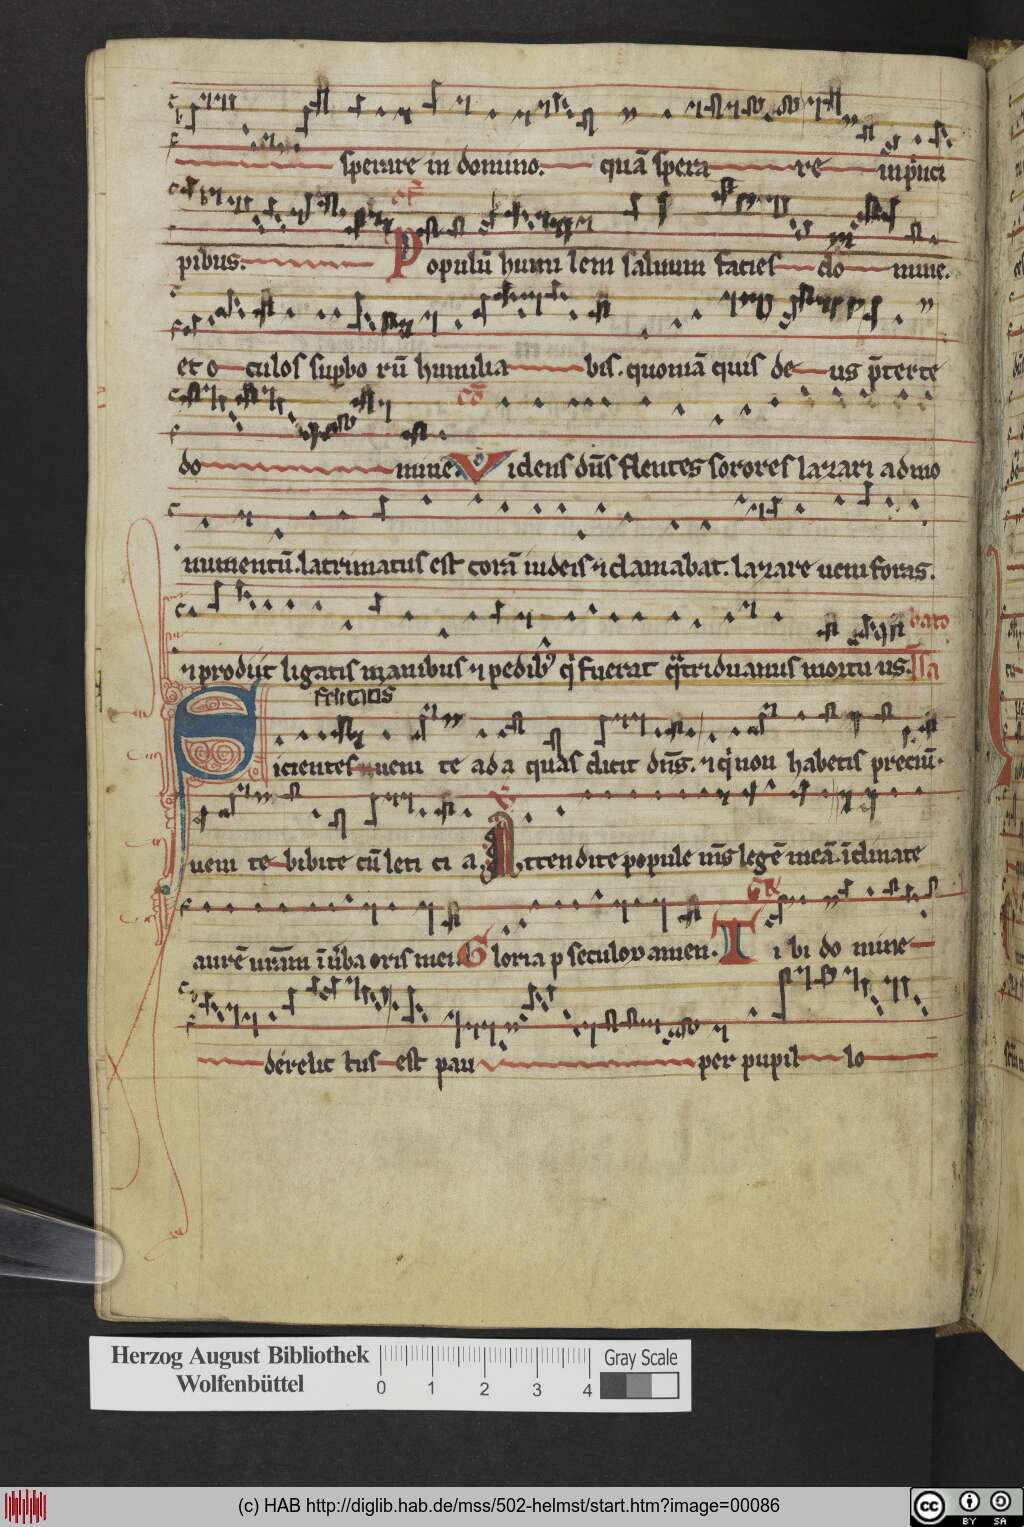 sperare in domino. quā spera re in p̄nci
pibus. of̄
Populū humi lem saluum facies do mine.
et o culos suꝑbo rū humilia bis. quoniā quis de us p̄ter te
do mine. cō Videns dn̄s flentes sorores lazari ad mo
numentū. lacrimatus est corā iudeis ⁊ clamabat. lazare ueni foras.
⁊ prodijt ligatis manibus ⁊ pedibꝰ qͥ fuerat qͣtriduanus mortu us. Sa
bato
Sicientes ueni te ad a quas dicit dn̄s. ⁊ qͥ non habetis preciū.
ueni te bibite cū leti ci a. Attendite popule m̄s legē meā. īclinate
aurē urām ī ūba oris mei. Gloria p seculoꝝ amen. Gͬ Ti bi do mine
derelic tus est pau per pupil lo
Herzog August Bibliothek
Wolfenbüttel
0 1 2 3 4
Gray Scale
(c) HAB http://diglib.hab.de/mss/502-helmst/start.htm?image=00086
cc BY SA